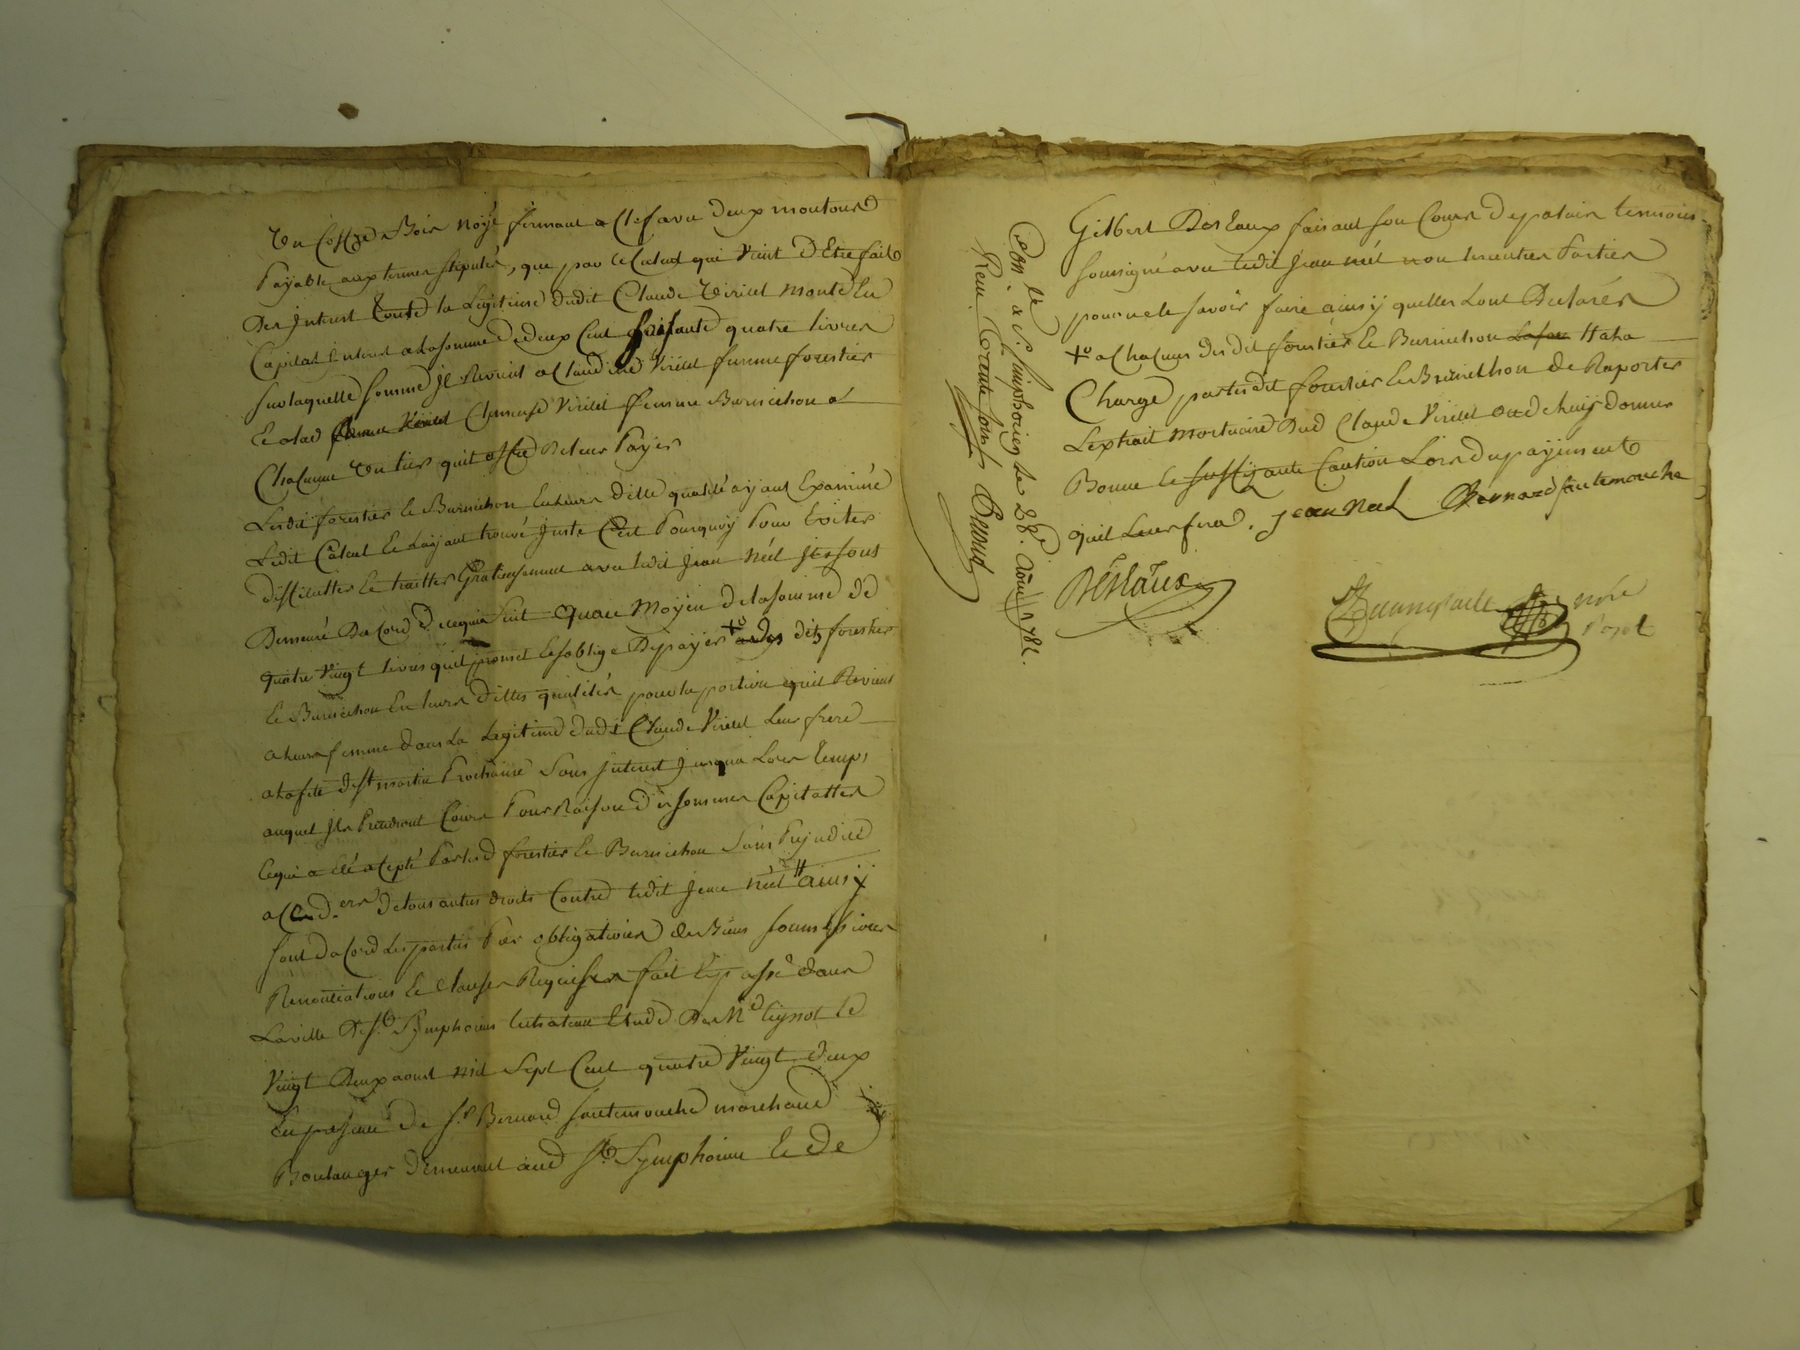 un Coffre Bois Noyé fermant a Clef avec deux moutons
Payable aux termes stipulés, que par le Calcul qui Vient d'Etre fait
Des Interest toute la Legitime dudit Claude Viricel monte En
Capital Interest a la somme de deux Cent soisante quatre livres
sur laquelle somme Il Revient a Claudine Viricel femme forestier
Et alad Clemense Viricel femme Burnichon a
Chacune un tier quil offre De leur Payer
Lesdit forestier Et Burnichon En leurs ditte qualité ayant Examiné
Ledit Calcul Et Layant trouvé Juste C'Est Pourquoy Pour Eviter
difficultes Et traitter Gratieusement avec ledit Jean Néel Ils sont
Demeuré Dacord De ce qui suit quau Moyen de la somme de
quatre Vingt livres quil promet Et soblige De payer +o des dits forestier
Et Burnichon En leurs dittes qualités pour la portion quil Revient
a leurs femme dans La Legitime dudit Claude Viricel Leur frere
a la fete de St martin Prochaine sans Interest jusqua Lors temps
auquel Ils Prendront Cours Pour Raison des sommes Capitalles
Ce qui a Eté accepté Par lesd forestier Et Burnichon sans Prejudice
de tous autres droits Contre ledit Jean Néel # ainsy
sont dacord les parties Par obligations de Biens soumissions
Renontiations Et Clauses Requises fait Et passé dans
La ville De St Symphorien Lechateau Etude De Me le
Vingt Deux aoust mil sept Cent quatre Vingt deux
En presence de Sr Bernard sautemouche marchand
Boulanger demeurant aud St Symphorien Et de
Con. le
a St Simphorien le 28e aout 1782.
Reçu Trente sous
Gilbert Deslaux faisant son Cours De palais temoins
soussigné avec ledit Jean Néel non lesautres Parties
pour ne le savoir faire ainsy quelles Lont Declarés
+o a Chacuns desdit forestier Et Burnichon # a la
Charge par lesdit forestier Et Burnichon de Raporter
L'extrait mortuaire dud Claude Viricel oud chuis donner
Bonne Et suffizante Caution Lors du payement
quil Leur fera. jean Neel Bernard sautemouche
Deslaux
nore
Royal